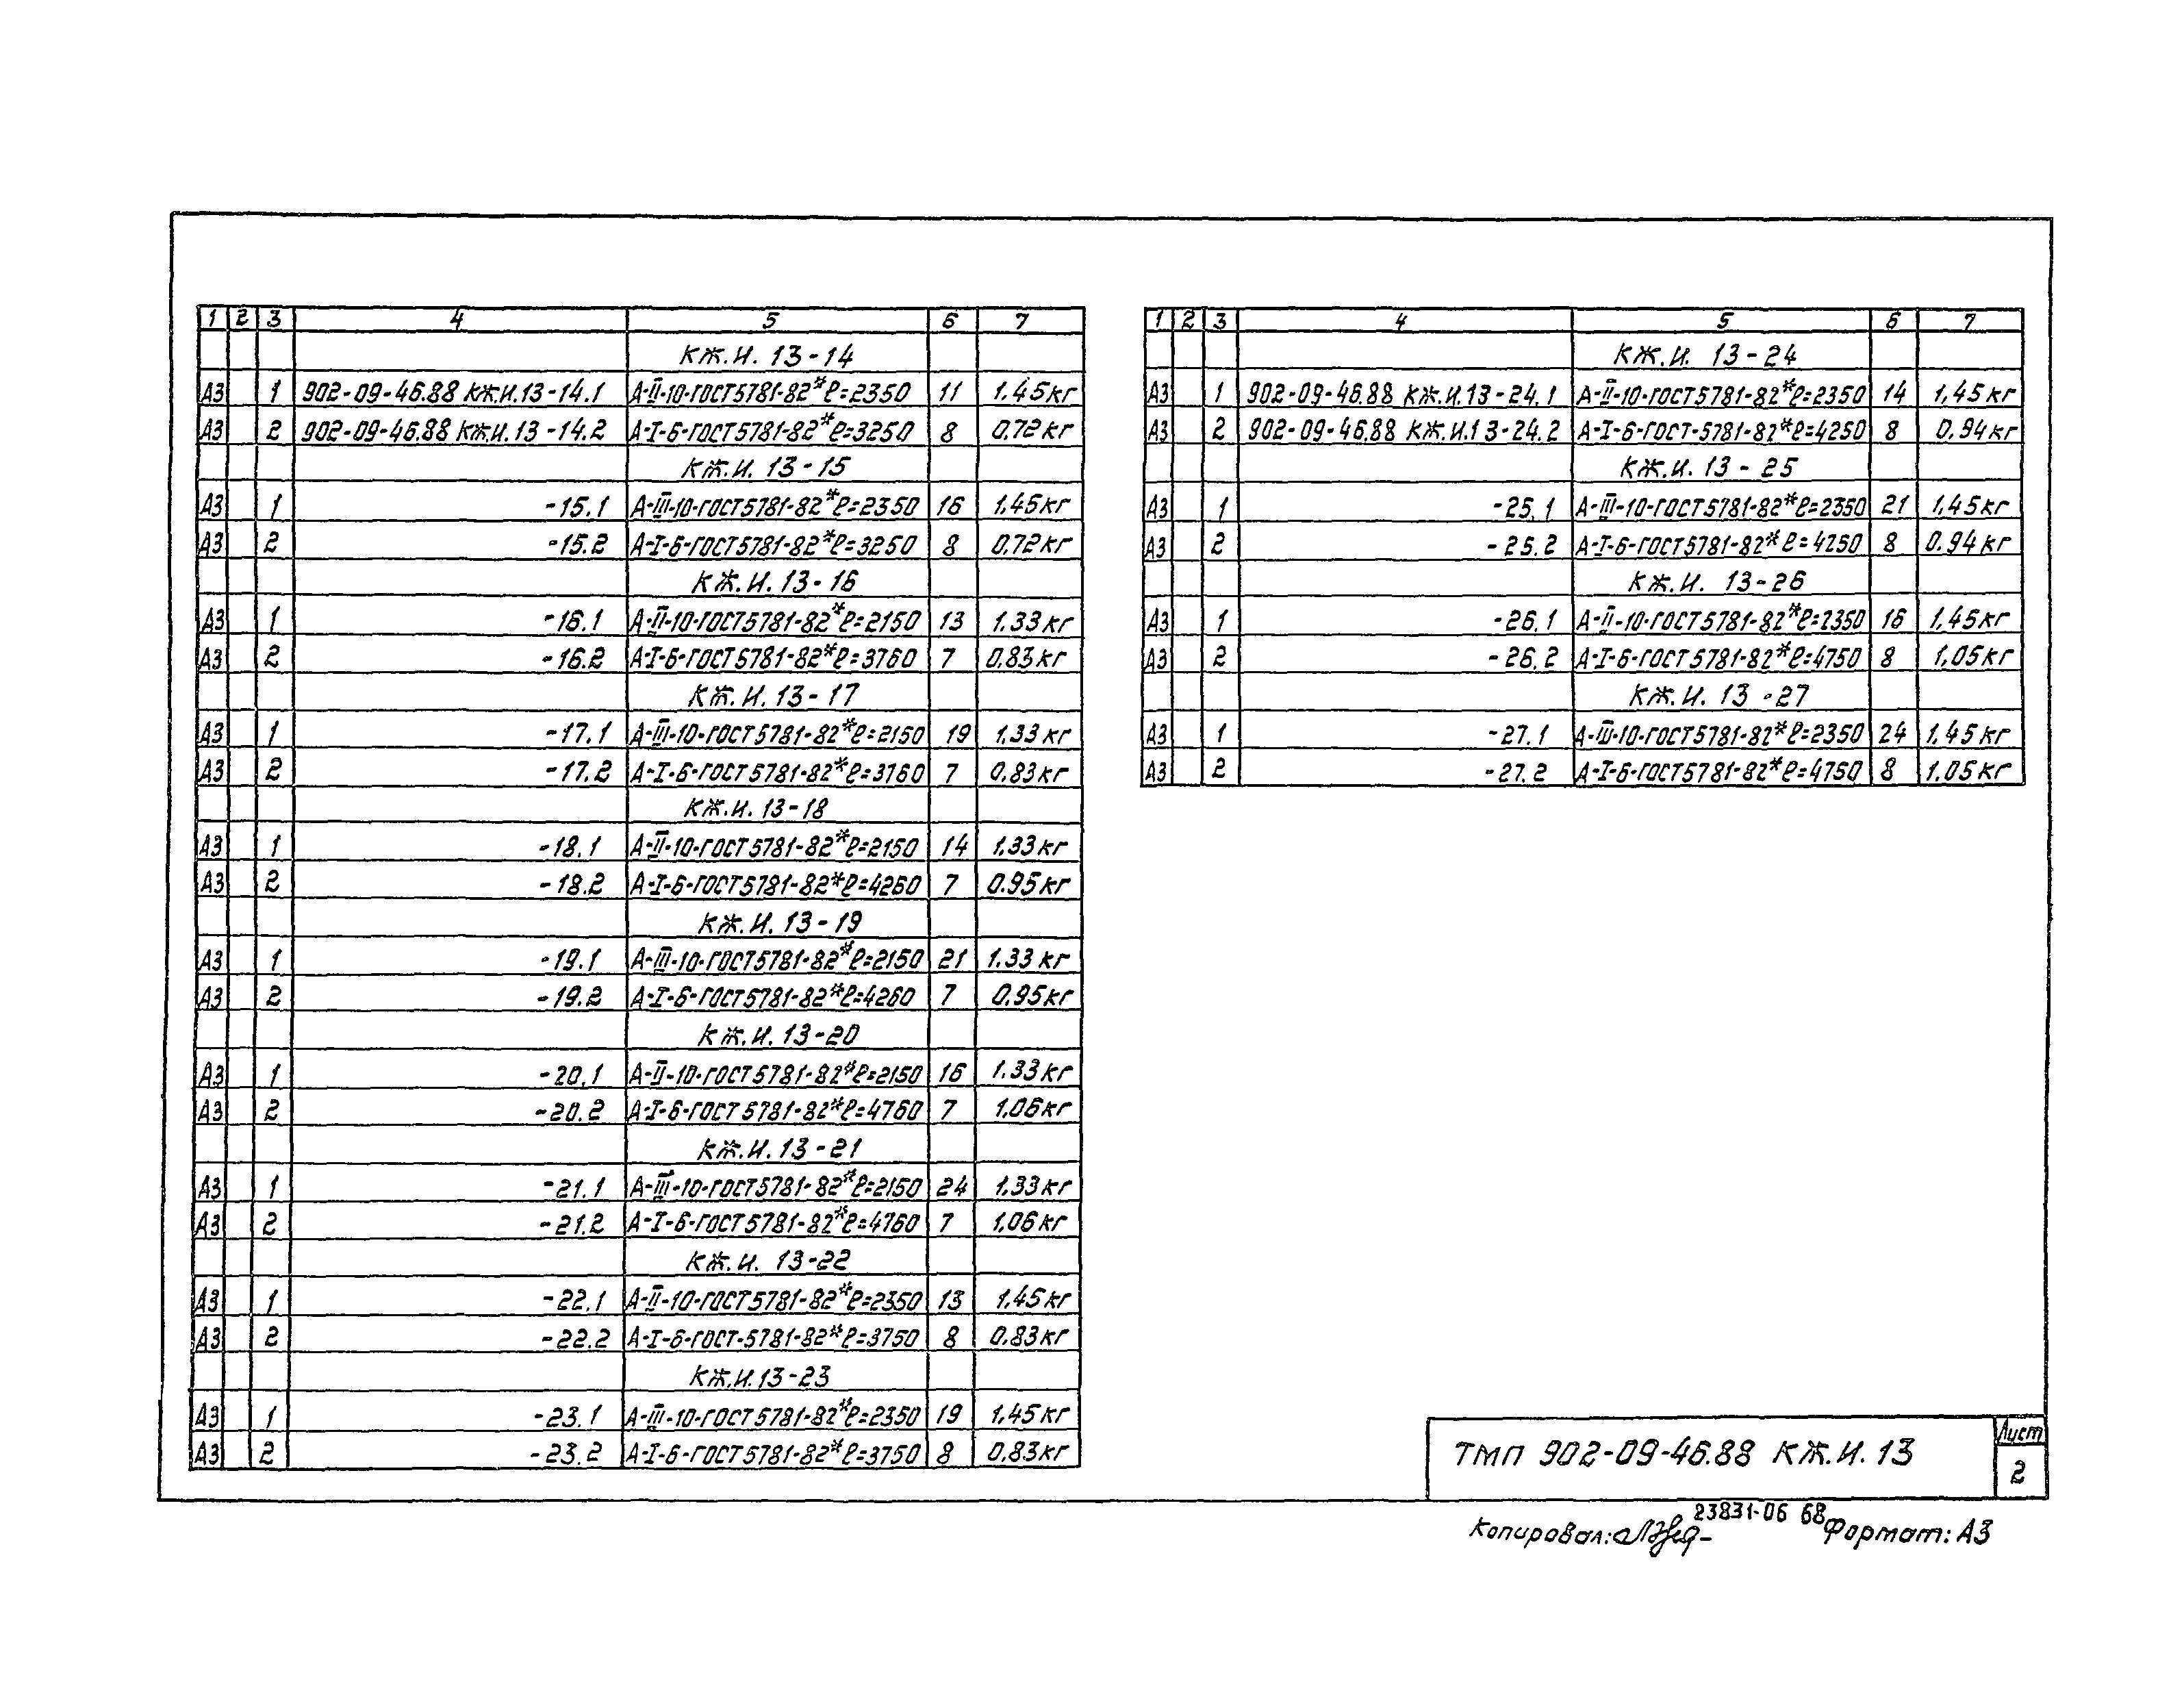 1 2 3 4 5 6 7
КЖ.И. 13-14
А3 1 902-09-46.88 КЖ.И.13-14.1 А-II-10-ГОСТ5781-82* ℓ=2350 11 1.45кг
А3 2 902-09-46.88 КЖ.И.13-14.2 А-I-6-ГОСТ5781-82* ℓ=3250 8 0.72кг
КЖ.И. 13-15
А3 1 -15.1 А-III-10-ГОСТ5781-82* ℓ=2350 16 1.45кг
А3 2 -15.2 А-I-6-ГОСТ5781-82* ℓ=3250 8 0.72кг
КЖ.И. 13-16
А3 1 -16.1 А-II-10-ГОСТ5781-82* ℓ=2150 13 1.33кг
А3 2 -16.2 А-I-6-ГОСТ5781-82* ℓ=3760 7 0.83кг
КЖ.И. 13-17
А3 1 -17.1 А-III-10-ГОСТ5781-82* ℓ=2150 19 1.33кг
А3 2 -17.2 А-I-6-ГОСТ5781-82* ℓ=3760 7 0.83кг
КЖ.И. 13-18
А3 1 -18.1 А-II-10-ГОСТ5781-82* ℓ=2150 14 1.33кг
А3 2 -18.2 А-I-6-ГОСТ5781-82* ℓ=4260 7 0.95кг
КЖ.И. 13-19
А3 1 -19.1 А-III-10-ГОСТ5781-82* ℓ=2150 21 1.33кг
А3 2 -19.2 А-I-6-ГОСТ5781-82* ℓ=4260 7 0.95кг
КЖ.И. 13-20
А3 1 -20.1 А-II-10-ГОСТ5781-82* ℓ=2150 16 1.33кг
А3 2 -20.2 А-I-6-ГОСТ5781-82* ℓ=4760 7 1.06кг
КЖ.И. 13-21
А3 1 -21.1 А-III-10-ГОСТ5781-82* ℓ=2150 24 1.33кг
А3 2 -21.2 А-I-6-ГОСТ5781-82* ℓ=4760 7 1.06кг
КЖ.И. 13-22
А3 1 -22.1 А-II-10-ГОСТ5781-82* ℓ=2350 13 1.45кг
А3 2 -22.2 А-I-6-ГОСТ-5781-82* ℓ=3750 8 0.83кг
КЖ.И.13-23
А3 1 -23.1 А-III-10-ГОСТ5781-82* ℓ=2350 19 1.45кг
А3 2 -23.2 А-I-6-ГОСТ5781-82* ℓ=3750 8 0.83кг
1 2 3 4 5 6 7
КЖ.И. 13-24
А3 1 902-09-46.88 КЖ.И.13-24.1 А-II-10-ГОСТ5781-82* ℓ=2350 14 1,45кг
А3 2 902-09-46.88 КЖ.И.13-24.2 А-I-6-ГОСТ-5781-82* ℓ=4250 8 0.94кг
КЖ.И. 13-25
А3 1 -25.1 А-III-10-ГОСТ5781-82* ℓ=2350 21 1,45кг
А3 2 -25.2 А-I-6-ГОСТ5781-82* ℓ=4250 8 0.94кг
КЖ.И. 13-26
А3 1 -26.1 А-II-10-ГОСТ5781-82* ℓ=2350 16 1,45кг
А3 2 -26.2 А-I-6-ГОСТ5781-82* ℓ=4750 8 1,05кг
КЖ.И. 13-27
А3 1 -27.1 А-III-10-ГОСТ5781-82* ℓ=2350 24 1,45кг
А3 2 -27.2 А-I-6-ГОСТ5781-82* ℓ=4750 8 1.05кг
ТМП 902-09-46.88 КЖ.И.13
Лист
2
23831-06 68
Копировал: Формат: А3